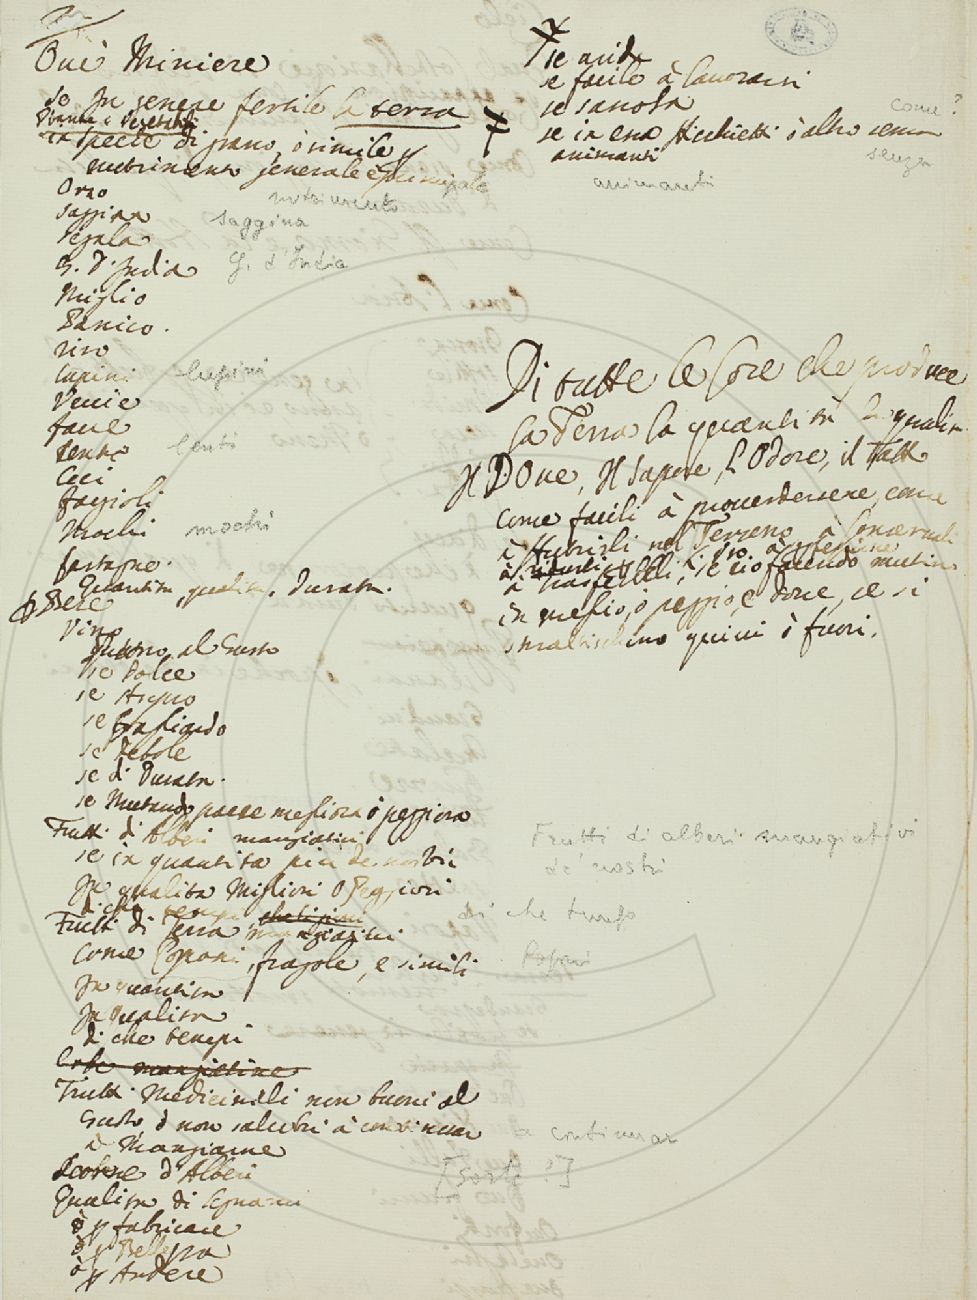 Oue Miniere
se In genere fertile la terra
Piante e Vegetabili
in spetie di grano, ò simile p
nutrimento generale e principale
nutrimento
Orzo
saggina
saggina
segala
G. d'India
G. d'India
Miglio
Panico.
riso
lupini
lupini
Veccie
faue
lenti
lenti
Ceci
fagioli
Mochi
mochi
Castagne.
Quantita, qualita, Durata.
Bere
Vino
quanto al Gusto
se Dolce
se Aspro
se Gagliardo
se Debole
se di Durata.
se Mutando paese megliora ò peggiora
Frutti di Alberi mangiatiui
se in quantita più de nostri
In qualita Migliori o Peggiori
di che tempi
Frutti di Terra mangiatiui
Come Poponi, fragole, e simili
In quantita
In Qualita
di che tempi
Erbe mangiatiue
Frutti Medicinali non buoni al
Gusto ò non salubri à continuar
à Mangiarne
d'Alberi
Qualita di Legnami
ò p fabricare
ò p Bellezza
ò p Ardere
se arida
se facile à lauorarsi
se sassosa
come?
se in essa Nicchietti ò altro senza
senza
animanti
animanti
Di tutte le Cose che produce
la Terra la quantita, La qualita.
Il Doue, Il Sapore, L'Odore, il Tatto
come facili à prouedersene, come
à Nutrirli nel Terreno, à Conseruarli
à trasferirli, se ciò facendo mutin
in meglio, ò peggio, e doue, se si
smaltischino quiui ò fuori.
Frutti di alberi mangiativi
de' nostri
di che tempo
Poponi
a continuar
[sorte?]